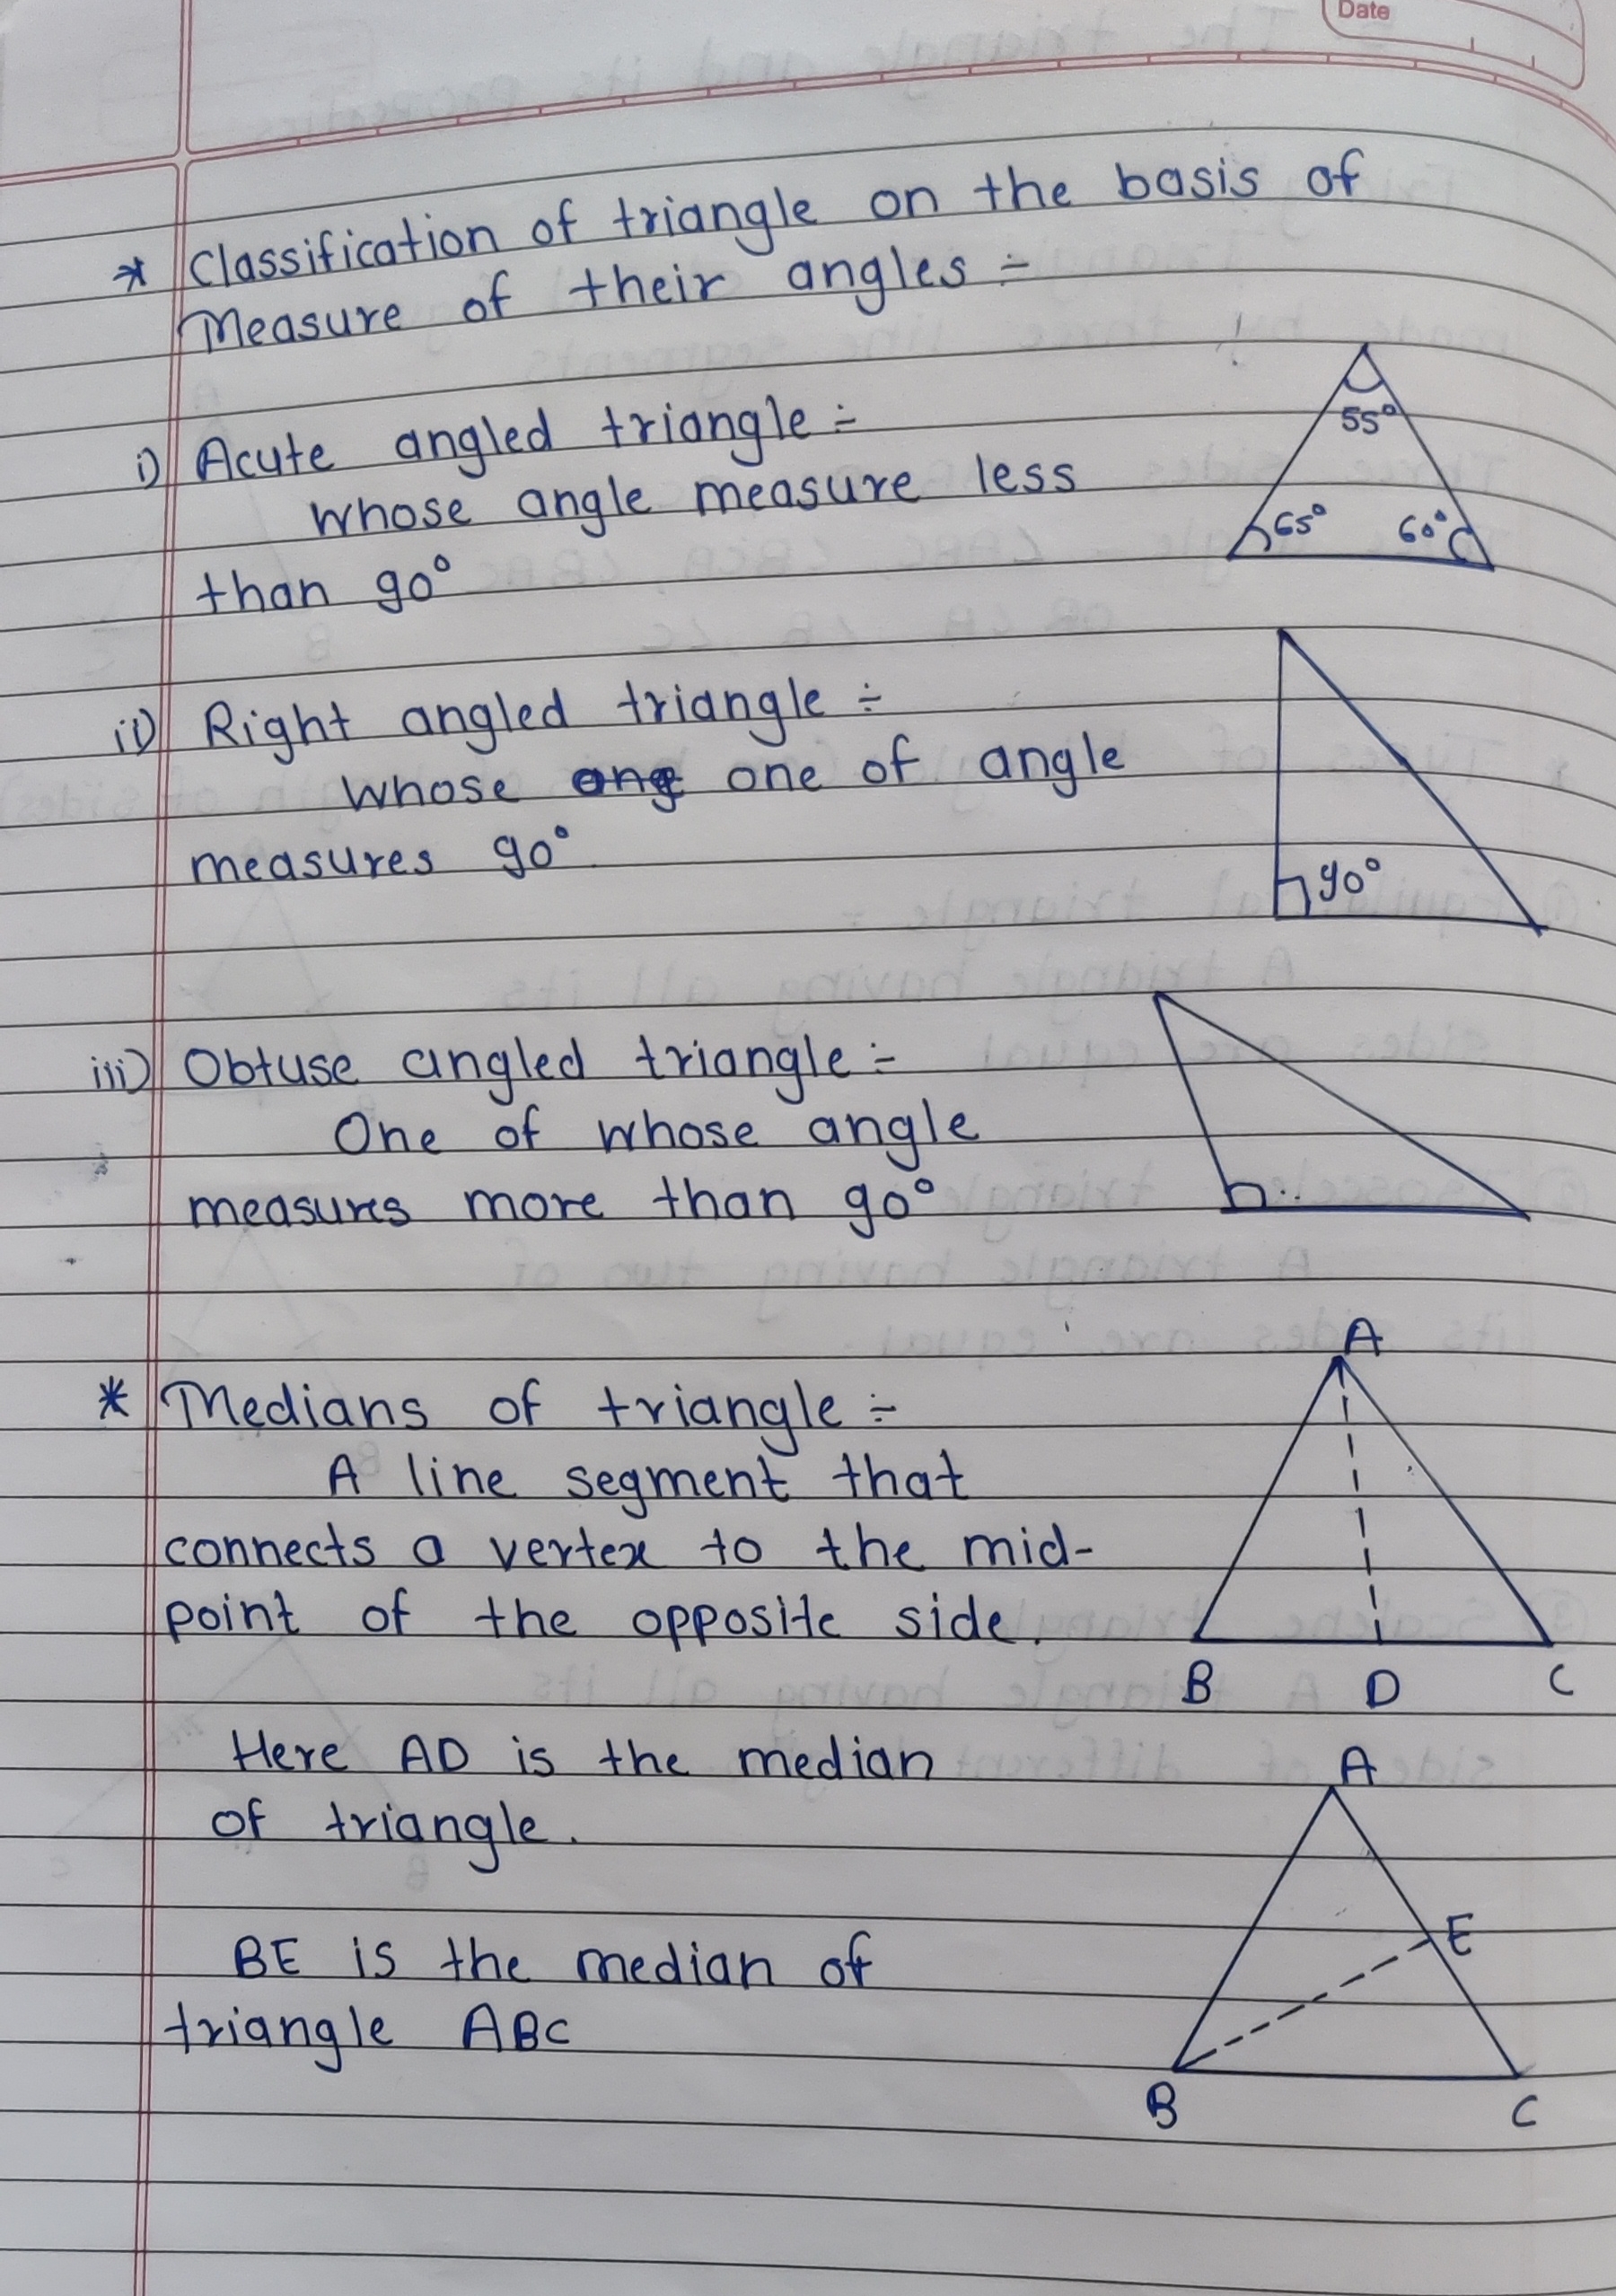 Date
* Classification of triangle on the basis of
Measure of their angles ÷
i) Acute angled triangle ÷
whose angle measure less
than 90°
55°
65° 60°
ii) Right angled triangle ÷
whose one of angle
measures 90°
90°
iii) Obtuse angled triangle ÷
One of whose angle
measures more than 90°
* Medians of triangle ÷
A line segment that
connects a vertex to the mid-
point of the opposite side.
A
B D C
Here AD is the median
of triangle.
BE is the median of
triangle ABC
A
E
B C